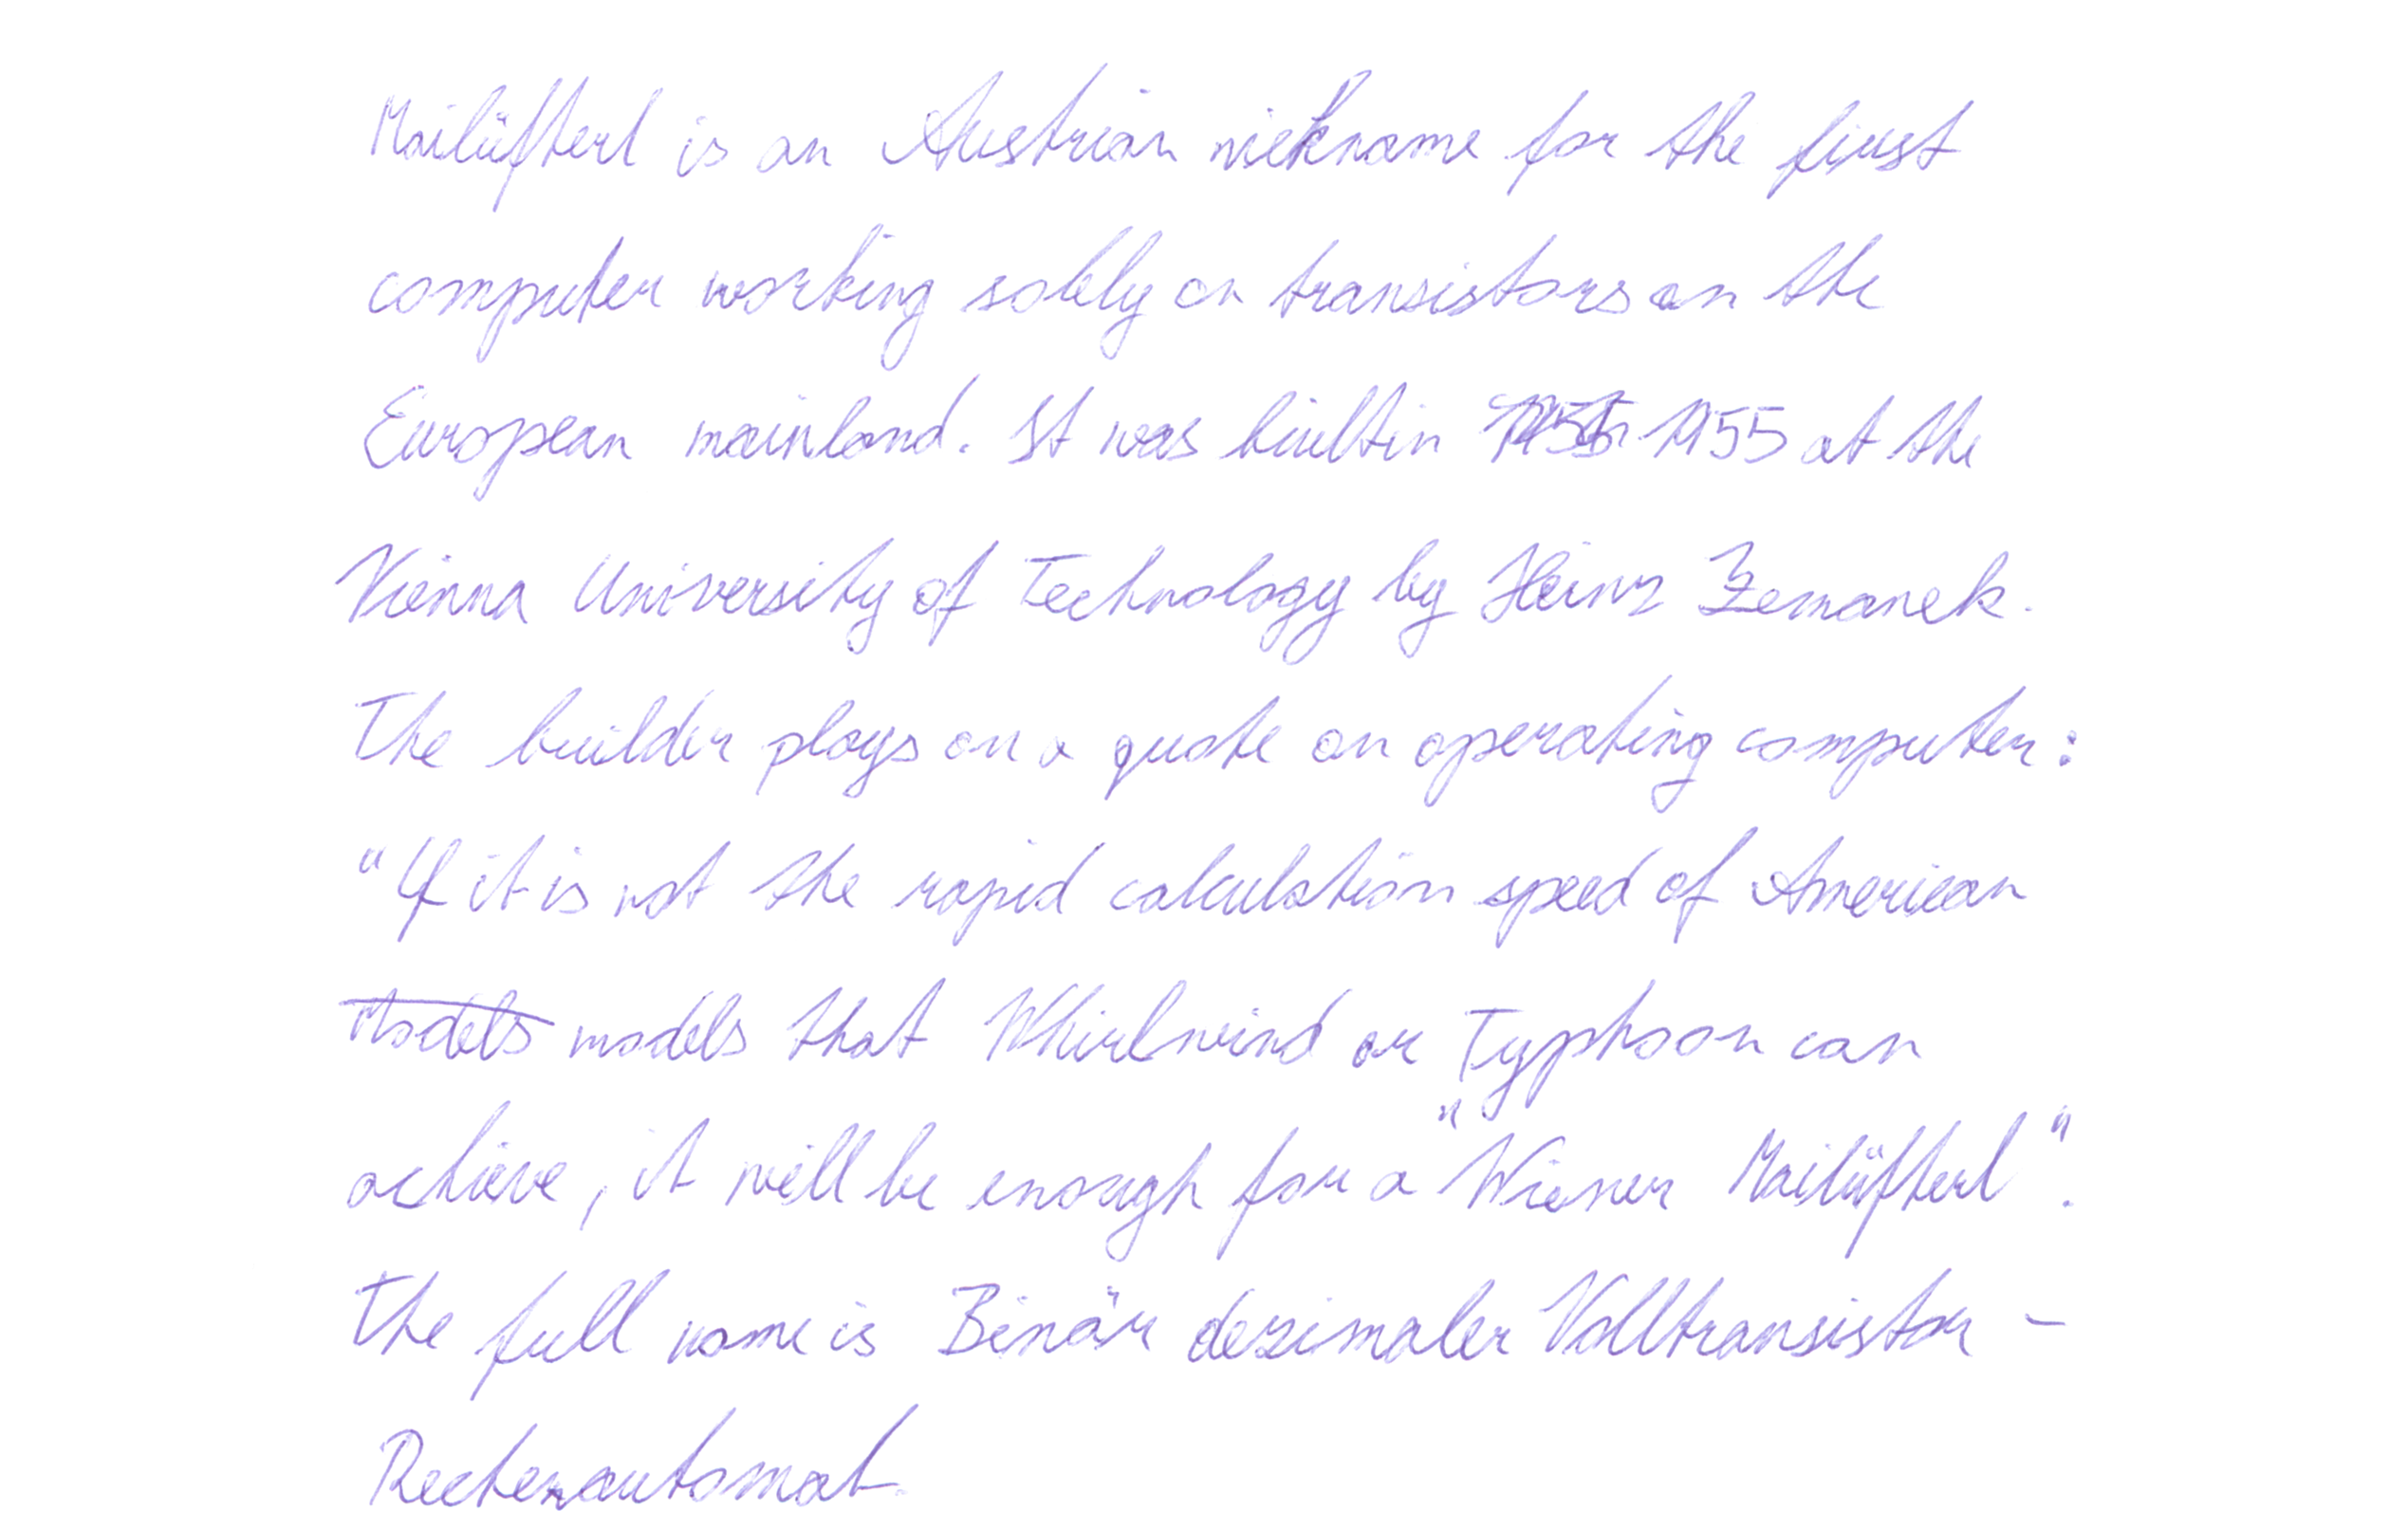 Mailüfterl is an Austrian nickname for the first
computer working solely on transistors on the
European mainland. It was built in 1955 at the
Vienna University of Technology by Heinz Zemanek.
The builder plays on a quote on operating computer:
"If it is not the rapid calculation speed of American
Models models that Whirlwind or Typhoon can
achieve, it will be enough for a "Wiener Mailüfterl".
The full name is Binär dezimaler Volltransistor -
Rechenautomat.